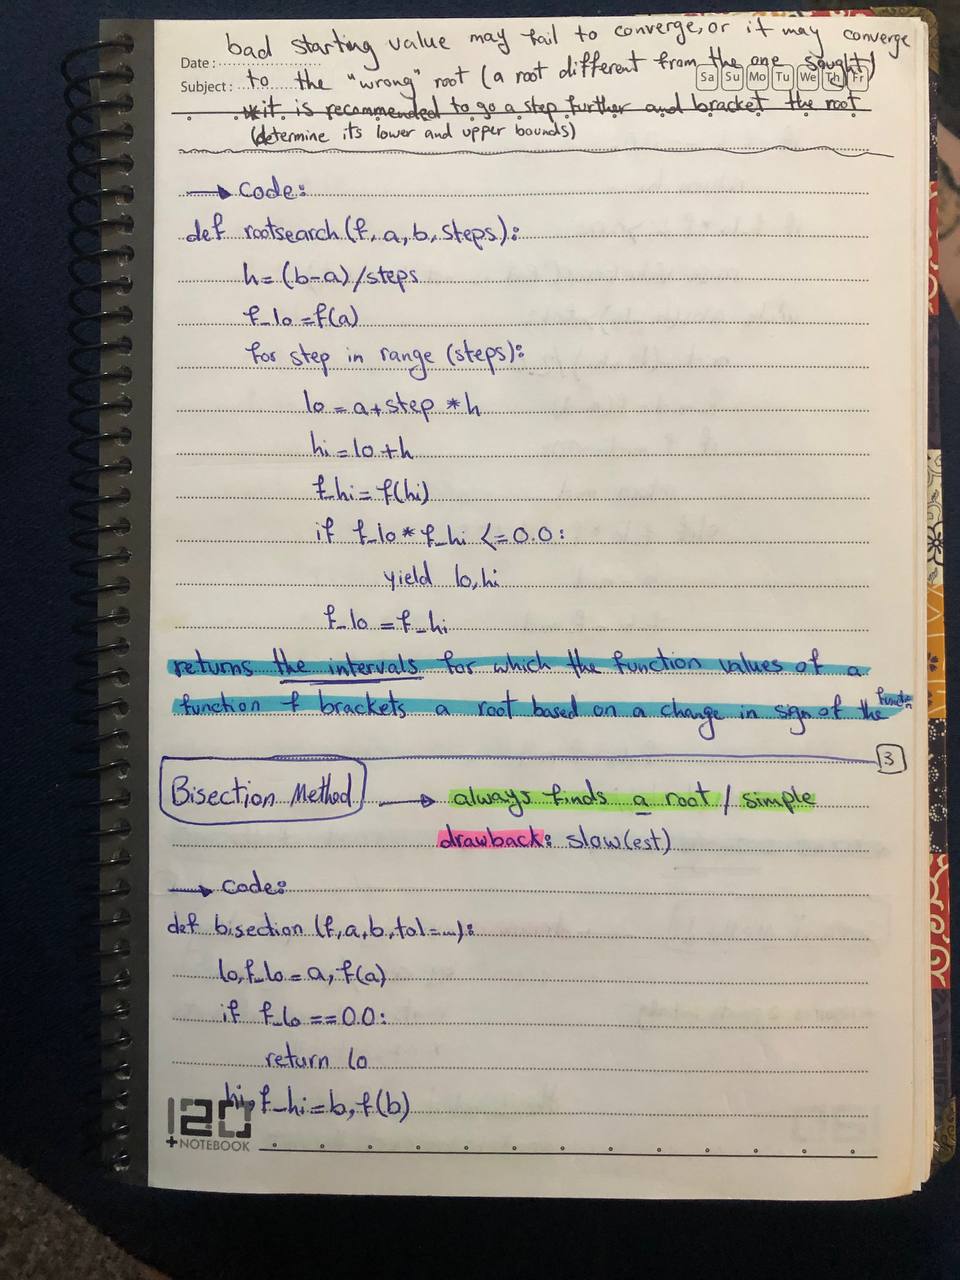 bad starting value may fail to converge, or it may converge
Date:
to the "wrong" root (a root different from the one sought)
Subject:
Sa Su Mo Tu We Th Fr
*it is recommended to go a step further and bracket the root
(determine its lower and upper bounds)
→ code:
def rootsearch(f, a, b, steps):
h=(b-a)/steps
f_lo=f(a)
for step in range (steps):
lo=a+step*h
hi=lo+h
f_hi=f(hi)
if f_lo*f_hi <=0.0:
yield lo,hi
f_lo=f_hi
returns the intervals for which the function values of a
function f brackets a root based on a change in sign of the function
3
Bisection Method → always finds a root / simple
drawback: slow(est)
→ code:
def bisection (f,a,b,tol=...):
lo,f_lo=a,f(a)
if f_lo==0.0:
return lo
hi,f_hi=b,f(b)
120
+NOTEBOOK